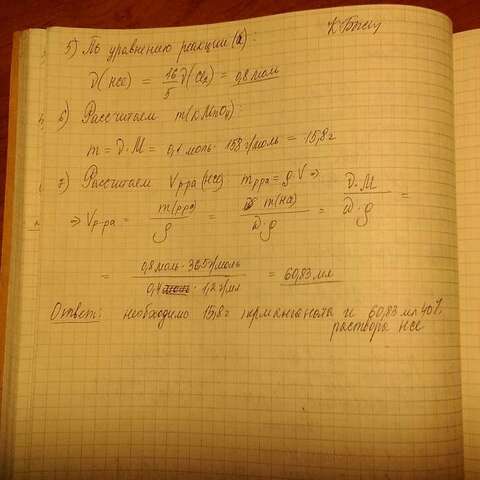 5) По уравнению реакции (2):
ν(HCl) = 16/5 ν(Cl₂) = 0,8 моль
6) Рассчитаем m(KMnO₄):
m = ν·M = 0,1 моль · 158 г/моль = 15,8 г
7) Рассчитаем Vр-ра (HCl): mр-ра = ρ·V ⇒
⇒ Vр-ра = m(р-ра)/ρ = m(HCl)/ω·ρ = ν·M/ω·ρ =
= 0,8 моль · 36,5 г/моль / 0,4 · 1,2 г/мл = 60,83 мл
Ответ: необходимо 15,8 г перманганата и 60,83 мл 40%
раствора HCl